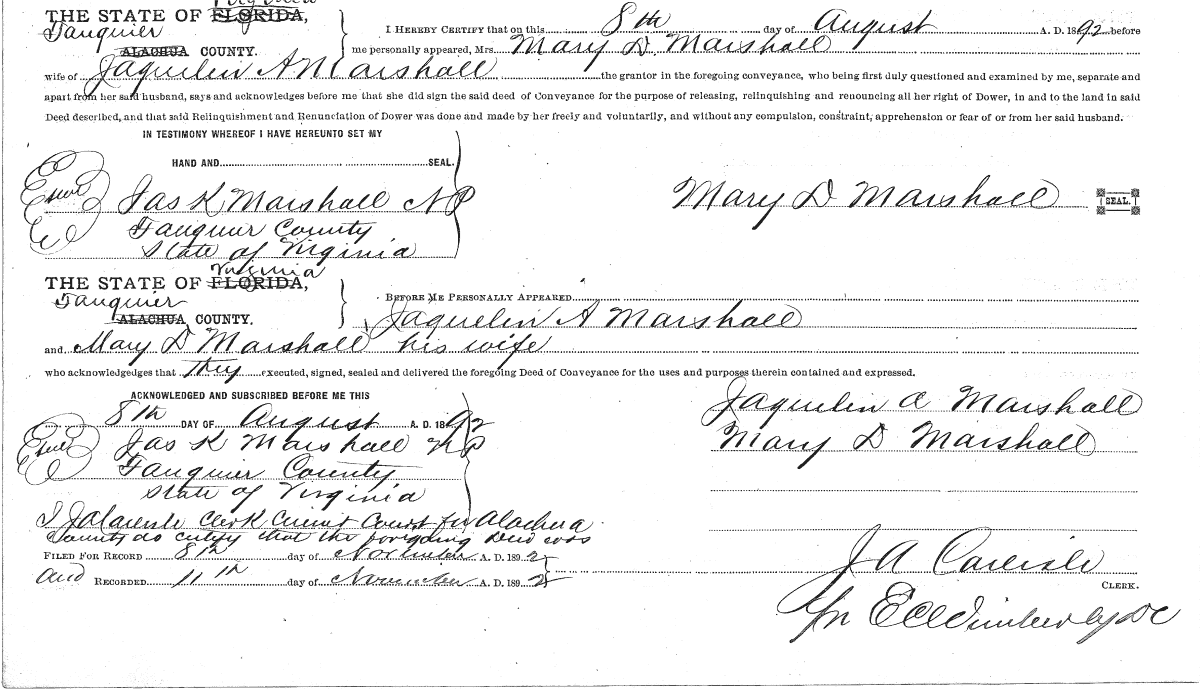 Virginia
THE STATE OF FLORIDA,
Fauquier
ALACHUA COUNTY.
I HEREBY CERTIFY that on this 8th day of August A. D. 1892 before
me personally appeared, Mrs. Mary D. Marshall
wife of Jaquelin A Marshall the grantor in the foregoing conveyance, who being first duly questioned and examined by me, separate and
apart from her said husband, says and acknowledges before me that she did sign the said deed of Conveyance for the purpose of releasing, relinquishing and renouncing all her right of Dower, in and to the land in said
Deed described, and that said Relinquishment and Renunciation of Dower was done and made by her freely and voluntarily, and without any compulsion, constraint, apprehension or fear of or from her said husband.
IN TESTIMONY WHEREOF I HAVE HEREUNTO SET MY
HAND AND SEAL.
Jas K Marshall NP
Fauquier County
State of Virginia
Mary D Marshall SEAL.
Virginia
THE STATE OF FLORIDA,
Fauquier
ALACHUA COUNTY.
BEFORE ME PERSONALLY APPEARED
Jaquelin A Marshall
and Mary D Marshall his wife
who acknowledges that They executed, signed, sealed and delivered the foregoing Deed of Conveyance for the uses and purposes therein contained and expressed.
ACKNOWLEDGED AND SUBSCRIBED BEFORE ME THIS
8th DAY OF August A. D. 1892
Jas K Marshall NP
Fauquier County
State of Virginia
Jaquelin A Marshall
Mary D Marshall
I JA Carlisle Clerk Circuit Court for Alachua
County do certify that the foregoing Deed was
FILED FOR RECORD 8th day of November A. D. 1892
and RECORDED 11th day of November A. D. 1892
J A Carlisle
CLERK.
Pr E C Wimberly DC